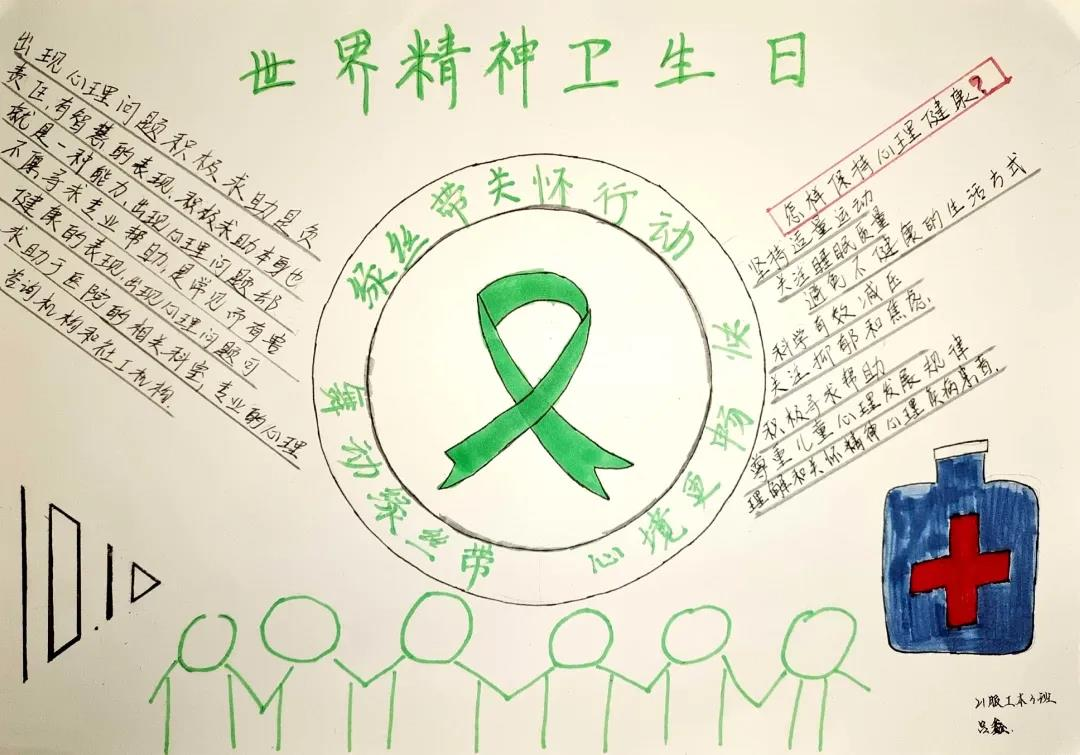 世界精神卫生日
出现心理问题积极求助是负
责任,有智慧的表现,积极求助本身也
就是一种能力,出现心理问题都
不屑寻求专业帮助,是常见而有害
健康的表现,出现心理问题可
求助于医院的相关科室,专业的心理
咨询机构和社工机构.
绿丝带关怀行动
舞动绿丝带
心境更畅快
怎样保持心理健康?
坚持适量运动
关注睡眠质量
避免不健康的生活方式
科学有效减压
关注抑郁和焦虑.
积极寻求帮助
尊重儿童心理发展规律
理解和关怀精神心理疾病患者.
10.10
21服工本 班